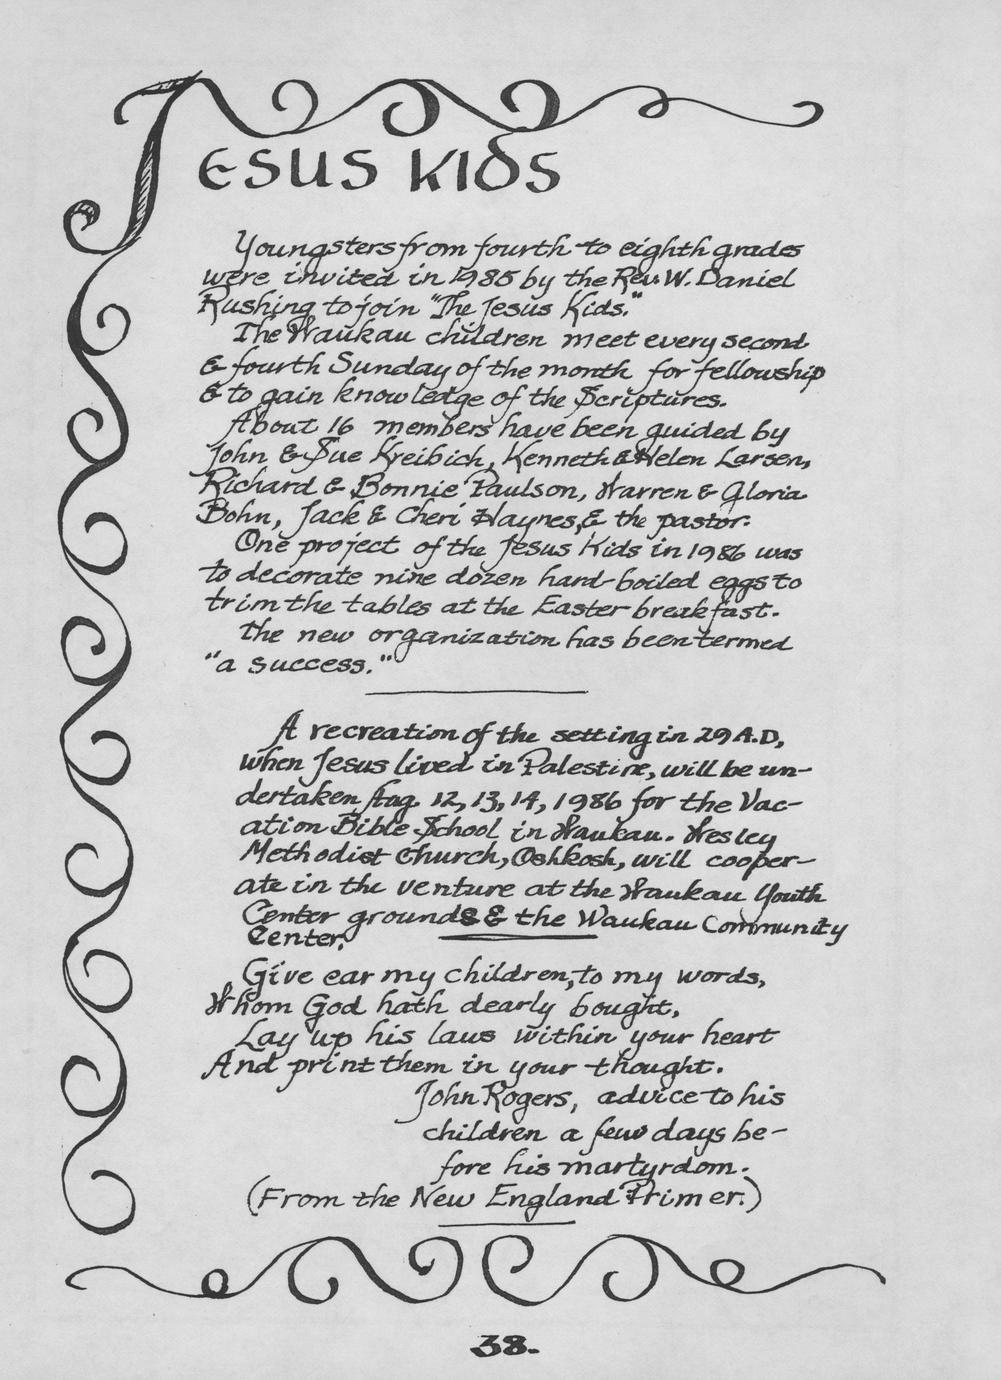 Jesus Kids
Youngsters from fourth to eighth grades
were invited in 1985 by the Rev. W. Daniel
Rushing to join "The Jesus Kids."
The Waukau children meet every second
& fourth Sunday of the month for fellowship
& to gain knowledge of the Scriptures.
About 16 members have been guided by
John & Sue Kreibich, Kenneth & Helen Larsen,
Richard & Bonnie Paulson, Warren & Gloria
Bohn, Jack & Cheri Haynes, & the pastor.
One project of the Jesus Kids in 1986 was
to decorate nine dozen hard-boiled eggs to
trim the tables at the Easter breakfast.
The new organization has been termed
"a success."
A recreation of the setting in 29 A.D,
when Jesus lived in Palestine, will be un-
dertaken Aug. 12, 13, 14, 1986 for the Vac-
ation Bible School in Waukau. Wesley
Methodist Church, Oshkosh, will cooper-
ate in the venture at the Waukau Youth
Center grounds & the Waukau Community
Center.
Give ear my children, to my words,
Whom God hath dearly bought,
Lay up his laws within your heart
And print them in your thought.
John Rogers, advice to his
children a few days be-
fore his martyrdom.
(From the New England Primer.)
38.